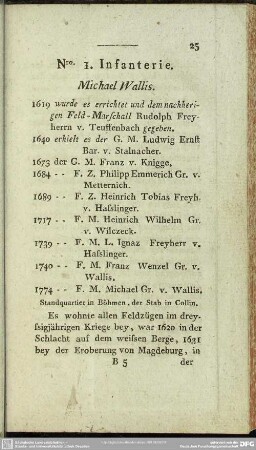 25
Nro. 1. Infanterie.
Michael Wallis.
1619 wurde es errichtet und dem nachheri-
gen Feld-Marschall Rudolph Frey-
herrn v. Teuffenbach gegeben.
1640 erhielt es der G. M. Ludwig Ernst
Bar. v. Stalnacher.
1673 der G. M. Franz v. Knigge.
1684 - - F. Z. Philipp Emmerich Gr. v.
Metternich.
1689 - - F. Z. Heinrich Tobias Freyh.
v. Hasslinger.
1717 - - F. M. Heinrich Wilhelm Gr.
v. Wilczeck.
1739 - - F. M. L. Ignaz Freyherr v.
Hasslinger.
1740 - - F. M. Franz Wenzel Gr. v.
Wallis.
1774 - - F. M. Michael Gr. v. Wallis.
Standquartier in Böhmen, der Stab in Collin.
Es wohnte allen Feldzügen im drey-
ssigjährigen Kriege bey, war 1620 in der
Schlacht auf dem weissen Berge, 1631
bey der Eroberung von Magdeburg, in
B 5 der